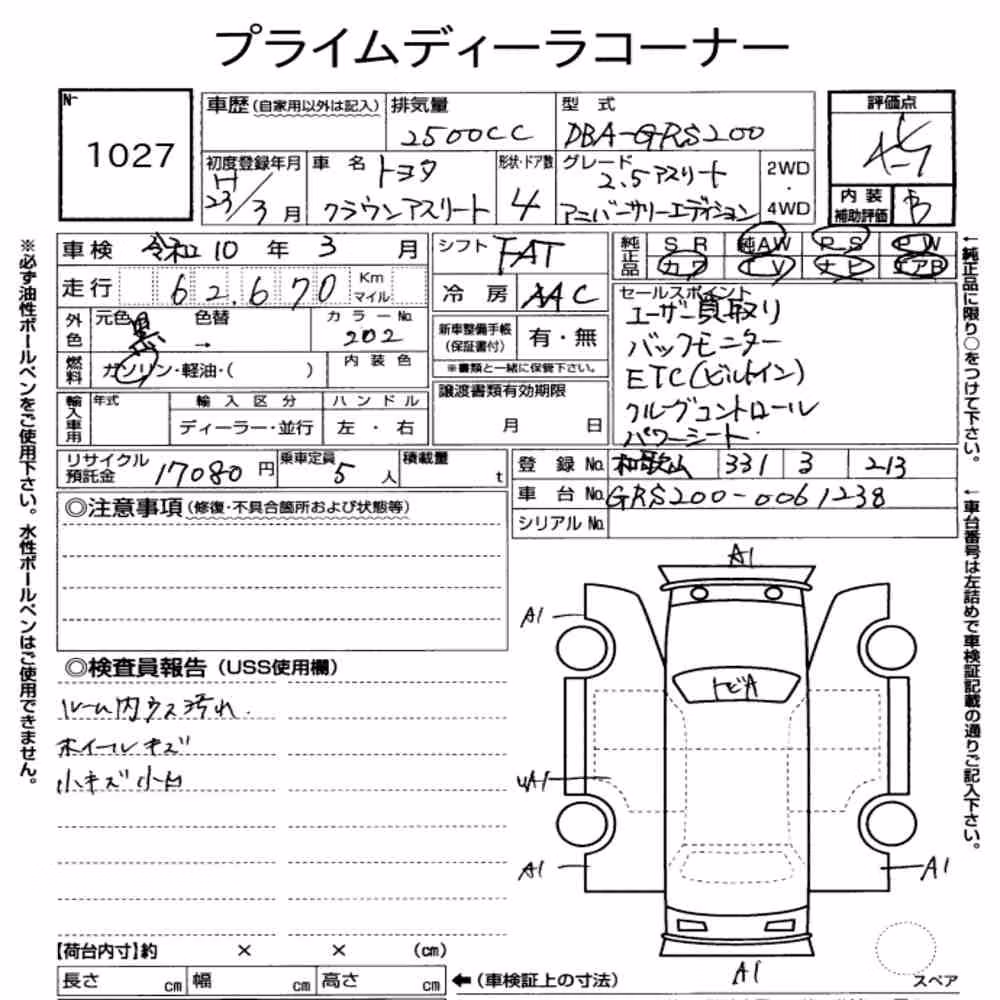 プライムディーラコーナー
N-
1027
車歴(自家用以外は記入)
排気量
2500CC
型式
DBA-GRS200
評価点
初度登録年月
H
23/3月
車名
トヨタ
クラウンアスリート
形状・ドア数
4
グレード
2.5アスリート
アニバーサリーエディション
2WD
・
4WD
内装
補助評価
B
車検 令和 10年 3月
走行 62.670 Km
マイル
シフト FAT
冷房 AAC
純正品
SR 純AW PS PW
カワ TV ナビ エアB
外色
元色 黒 色替 →
カラーNo.
202
燃料
ガソリン・軽油・( )
内装色
新車整備手帳
(保証書付)
有・無
※書類と一緒に保管下さい。
セールスポイント
ユーザー買取り
バックモニター
ETC(ビルトイン)
クルーズコントロール
パワーシート
輸入車用
年式
輸入区分
ディーラー・並行
ハンドル
左・右
譲渡書類有効期限
月 日
リサイクル
預託金
17080円
乗車定員
5人
積載量
t
登録No. 和歌山 331 3 213
車台No. GRS200-0061238
シリアルNo.
◎注意事項(修復・不具合箇所および状態等)
◎検査員報告(USS使用欄)
ルーム内ウス汚れ.
ホイールキズ
小キズ小凹
A1
A1
トビA
A1
A1
A1
A1
スペア
【荷台内寸】約 × × (cm)
長さ cm 幅 cm 高さ cm
←(車検証上の寸法)
※必ず油性ボールペンをご使用下さい。水性ボールペンはご使用できません。
←純正品に限り○をつけて下さい。
←車台番号は左詰めで車検証記載の通りご記入下さい。